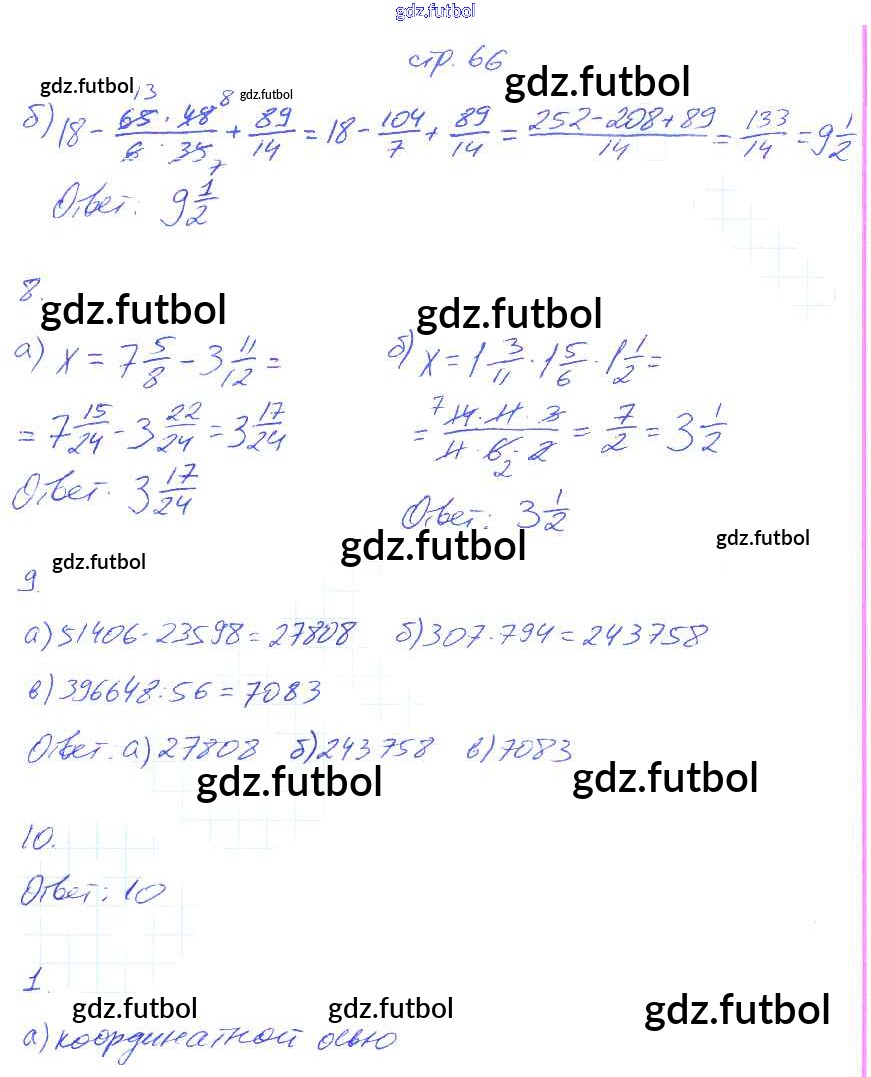 gdz.futbol
стр. 66
gdz.futbol gdz.futbol gdz.futbol
б) 18 - (65 · 48)/(6 · 35) + 89/14 = 18 - 104/7 + 89/14 = (252 - 208 + 89)/14 = 133/14 = 9 1/2
13 8 7
Ответ: 9 1/2
8.
gdz.futbol gdz.futbol
а) x = 7 5/8 - 3 11/12 =
= 7 15/24 - 3 22/24 = 3 17/24
Ответ. 3 17/24
б) x = 1 3/11 · 1 5/6 · 1 1/2 =
= (14 · 11 · 3)/(11 · 6 · 2) = 7/2 = 3 1/2
7 2
Ответ: 3 1/2
gdz.futbol gdz.futbol gdz.futbol
9.
а) 51406 - 23598 = 27808 б) 307 · 794 = 243758
в) 396648 : 56 = 7083
Ответ. а) 27808 б) 243758 в) 7083
gdz.futbol gdz.futbol
10.
Ответ: 10
1.
gdz.futbol gdz.futbol gdz.futbol
а) координатной осью